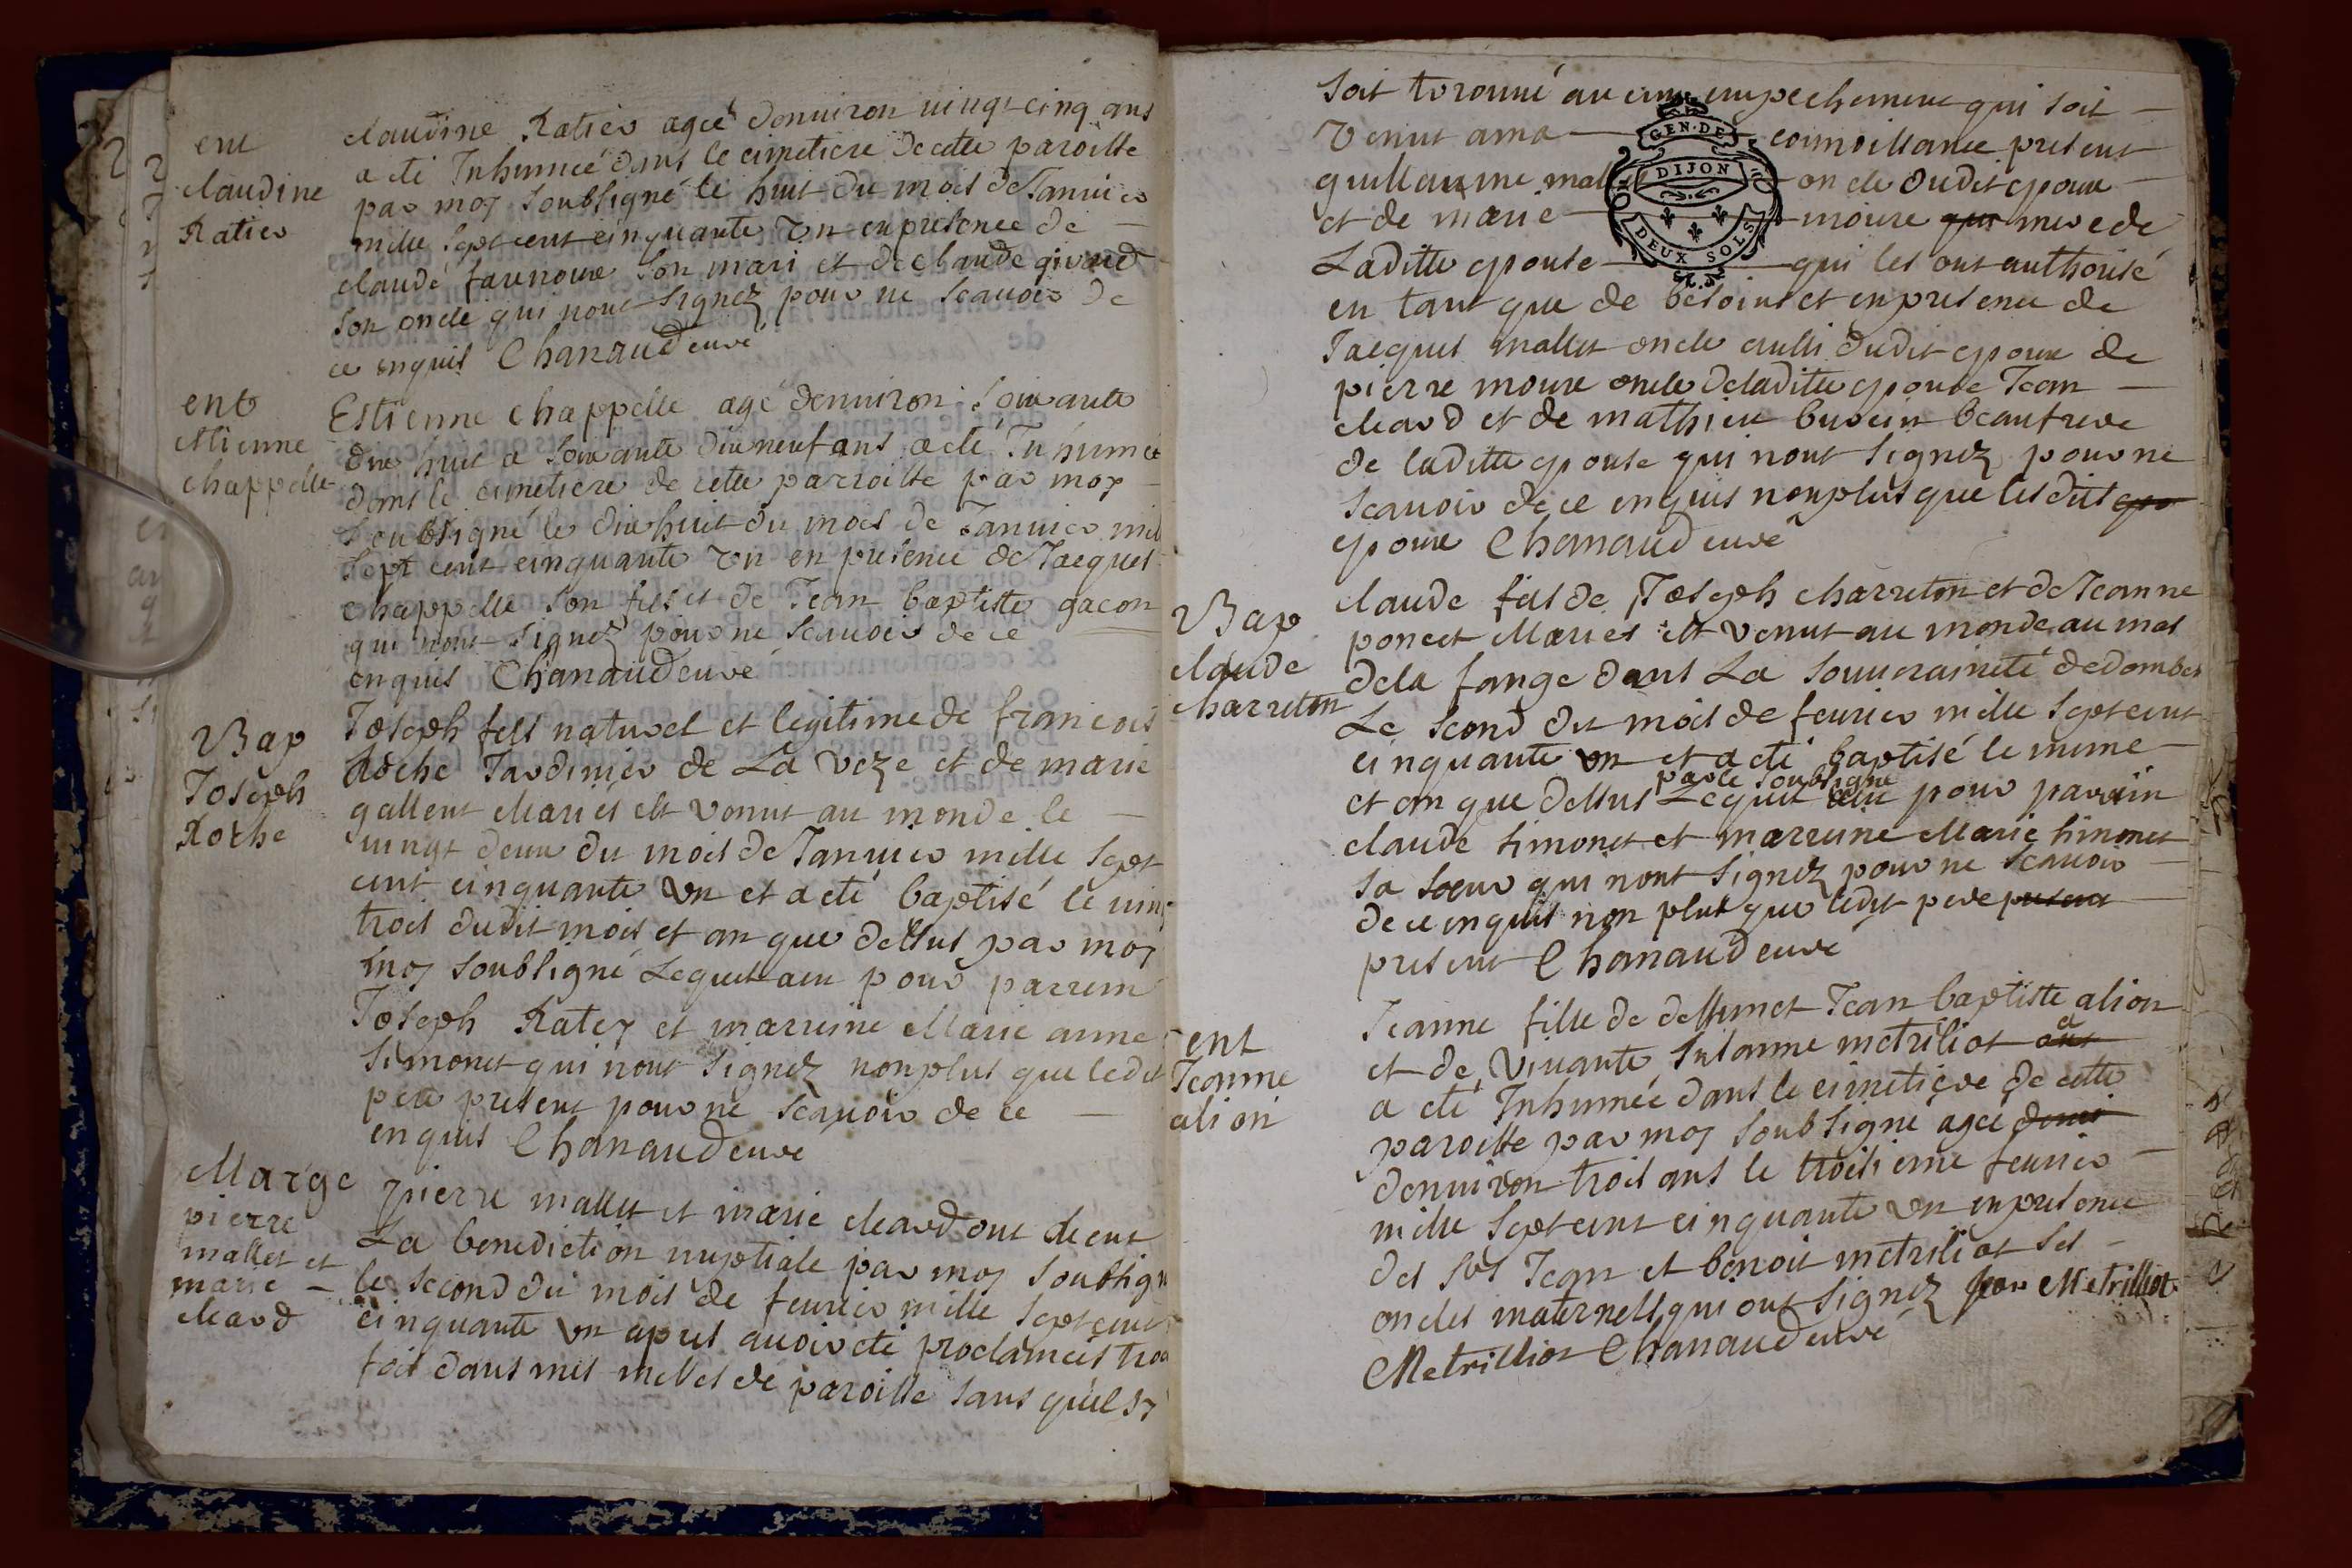 ent
claudine
Ratier
claudine Ratier agée denuiron uingt cinq ans
a eté Inhumeé dans le cimetiere de cette paroisse
par moy soubsigné le huit du mois de Januier
mille sept cent cinquante un en presence de
claude son mari et de claude giraud
son oncle qui nont signez pour ne scauoir de
ce enquis Chanaud curé
ent
estienne
chappelle
Estienne chappelle agé denuiron soixante
dix huit a soixante dix neuf ans a eté Inhumé
dans le cimetiere de cette parroisse par moy
soubsigné le dix huit du mois de Januier mil
sept cent cinquante un en presence de Jacques
chappelle son fils et de Jean baptiste gacon
qui nont signez pour ne scauoir de ce
enquis Chanaud curé
Bap
Joseph
Roche
Joseph fils naturel et legitime de francois
Roche Jardinier de La Veze et de marie
gallent Mariés est venut au monde le
uingt deux du mois de Januier mille sept
cent cinquante un et a eté baptisé le uingt
trois dudit mois et an que dessus par moy
moy soubsigné Lequel a eu pour parrein
Joseph Ratey et marreine Marie anne
Simonet qui nont signez nonplus que ledit
pere present pour ne scauoir de ce
enquis Chanaud curé
Marge
pierre
mallet et
marie
cleard
pierre mallet et marie cleard ont receut
La benediction nuptiale par moy soubsigné
le second du mois de feurier mille sept cent
cinquante un apres auoir eté proclameés trois
fois dans mes messes de paroisse sans quil sy
soit trouué aucun empechement qui soit
venut a ma connoissance present
guillaume mallet oncle dudit epoux
et de marie moire qui mere de
Laditte epouse qui les ont authorisé
en tant que de besoins et en presence de
Jacques mallet oncle aussi dudit epoux de
pierre moire oncle de laditte epouse Jean
cleard et de mathieu buvein beaufrere
de laditte epouse qui nont signez pour ne
scauoir de ce enquis nonplus que les dits epo
epoux Chanaud curé
GEN. DE
DIJON
DEUX SOLS
Bap
claude
charreton
claude fils de Joseph charreton et de Jeanne
poncet Mariés est venut au monde au mas
de la fange dans La souueraineté de dombes
Le scond du mois de feurier mille sept cent
cinquante un et a eté baptisé le mime
et an que dessus par le soubsigné Lequel a eu pour parrein
claude simonet et marreine Marie simonet
sa soeur qui nont signez pour ne scauoir
de ce enquis non plus que ledit pere present
present Chanaud curé
ent
Jeanne
alion
Jeanne fille de deffunct Jean baptiste alion
et de viuante Susanne metrilliot a
a eté Inhumée dans le cimetiere de cette
paroisse par moy soubsigné agée denui
denuiron trois ans le troisieme feurier
mille sept cent cinquante un en presence
des srs Jean et benoit metrilliot ses
oncles maternels qui ont signez Jean Metrilliot
Metrilliot Chanaud curé